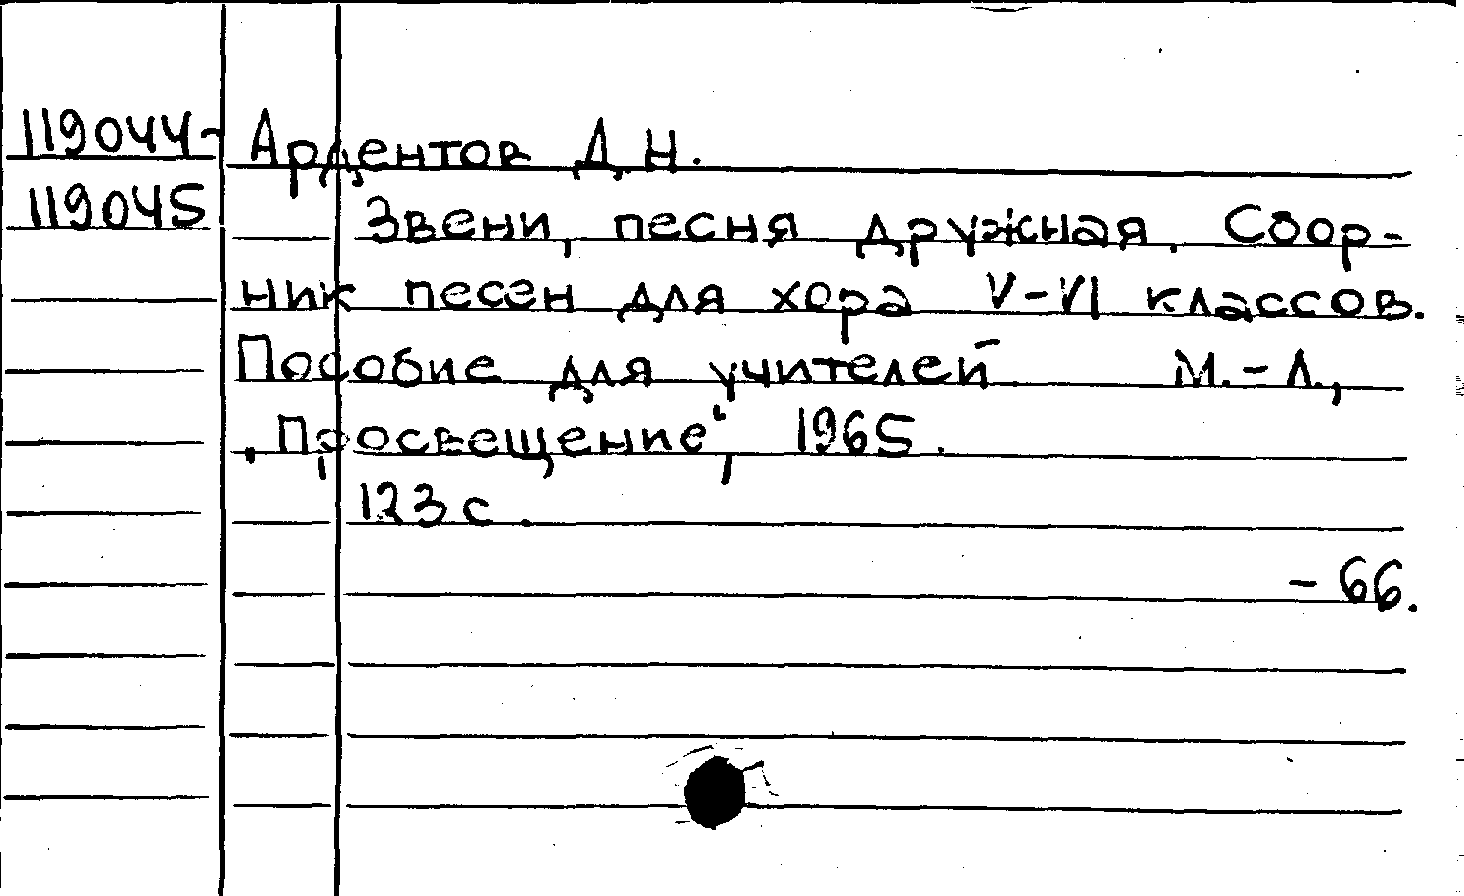 119044-
119045
Ардентов Д. Н.
Звени, песня дружная. Сбор-
ник песен для хора V-VI классов.
Пособие для учителей. М.-Л.,
„Просвещение“, 1965.
123 с.
- 66.